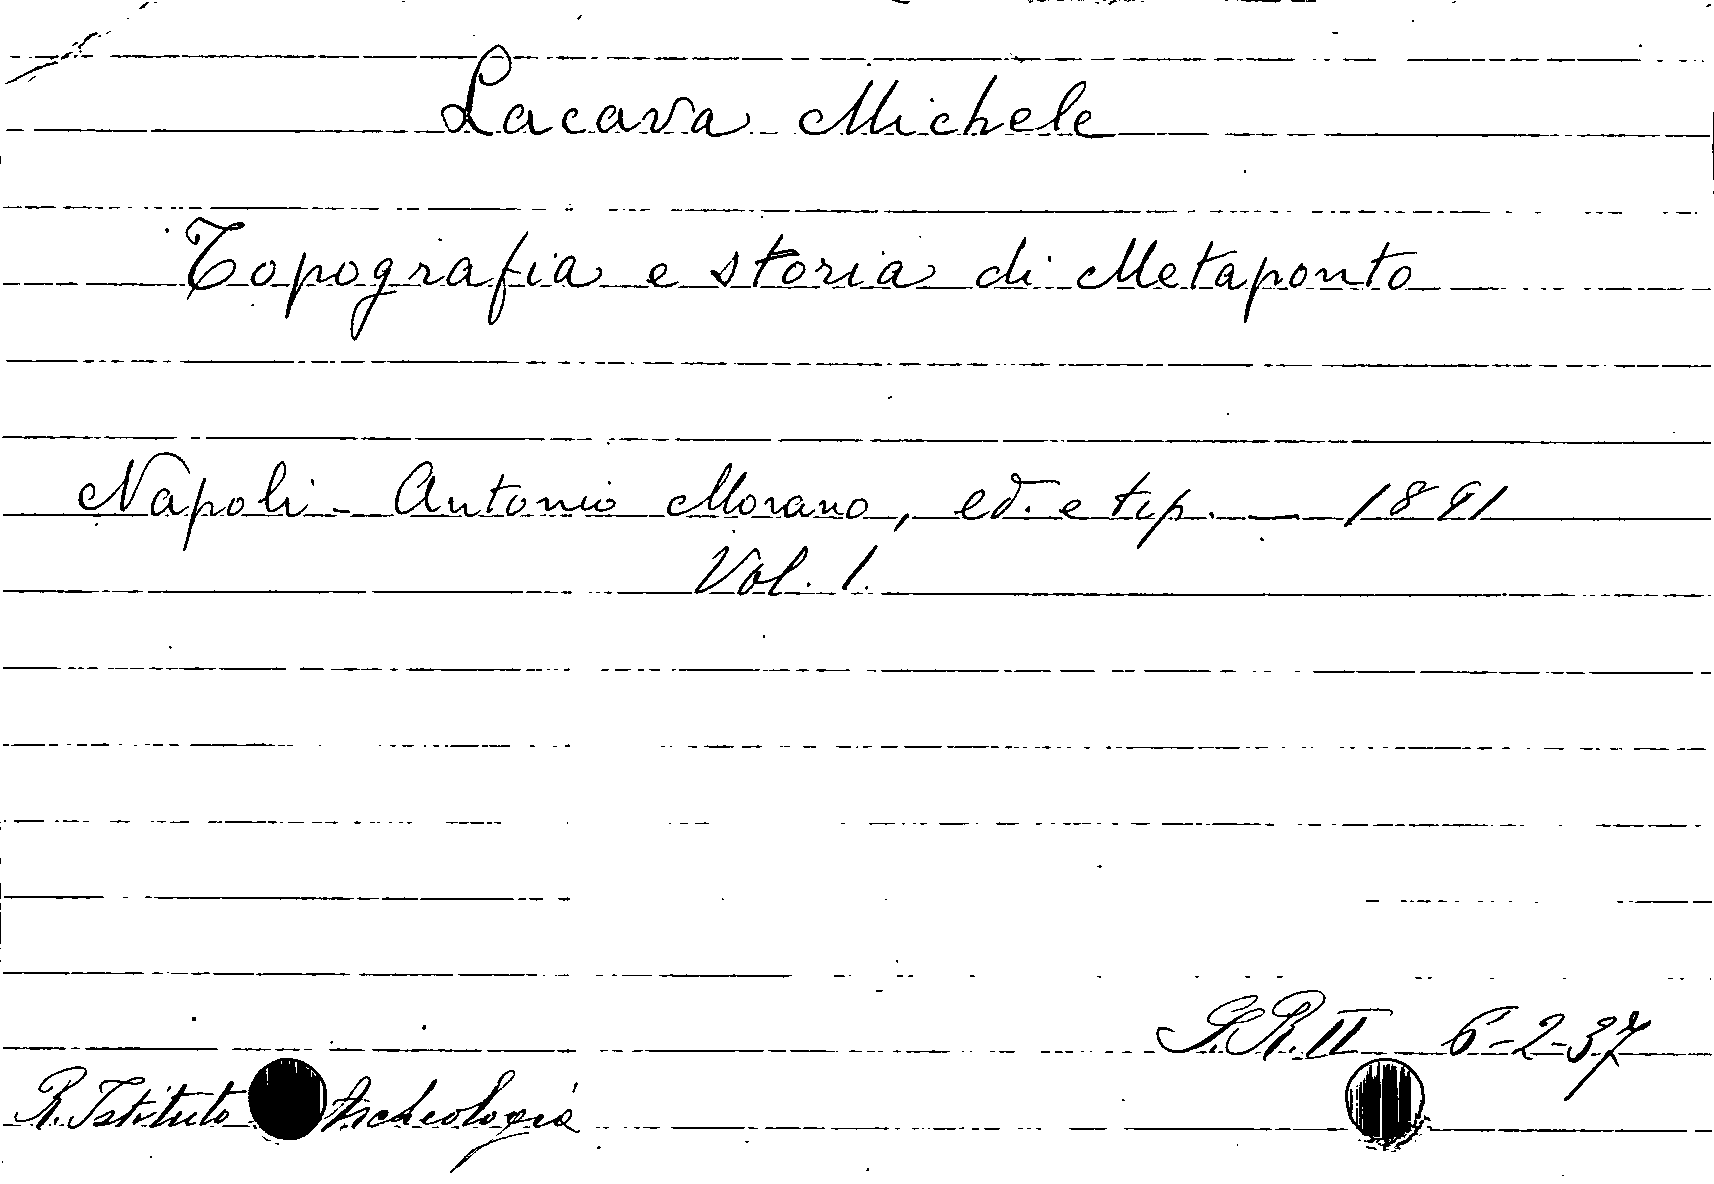 Lacava Michele
Topografia e storia di Metaponto
Napoli - Antonio Morano, ed. e tip. — 1891
Vol. 1.
S.R. II 6-2-37
R. Istituto Archeologia